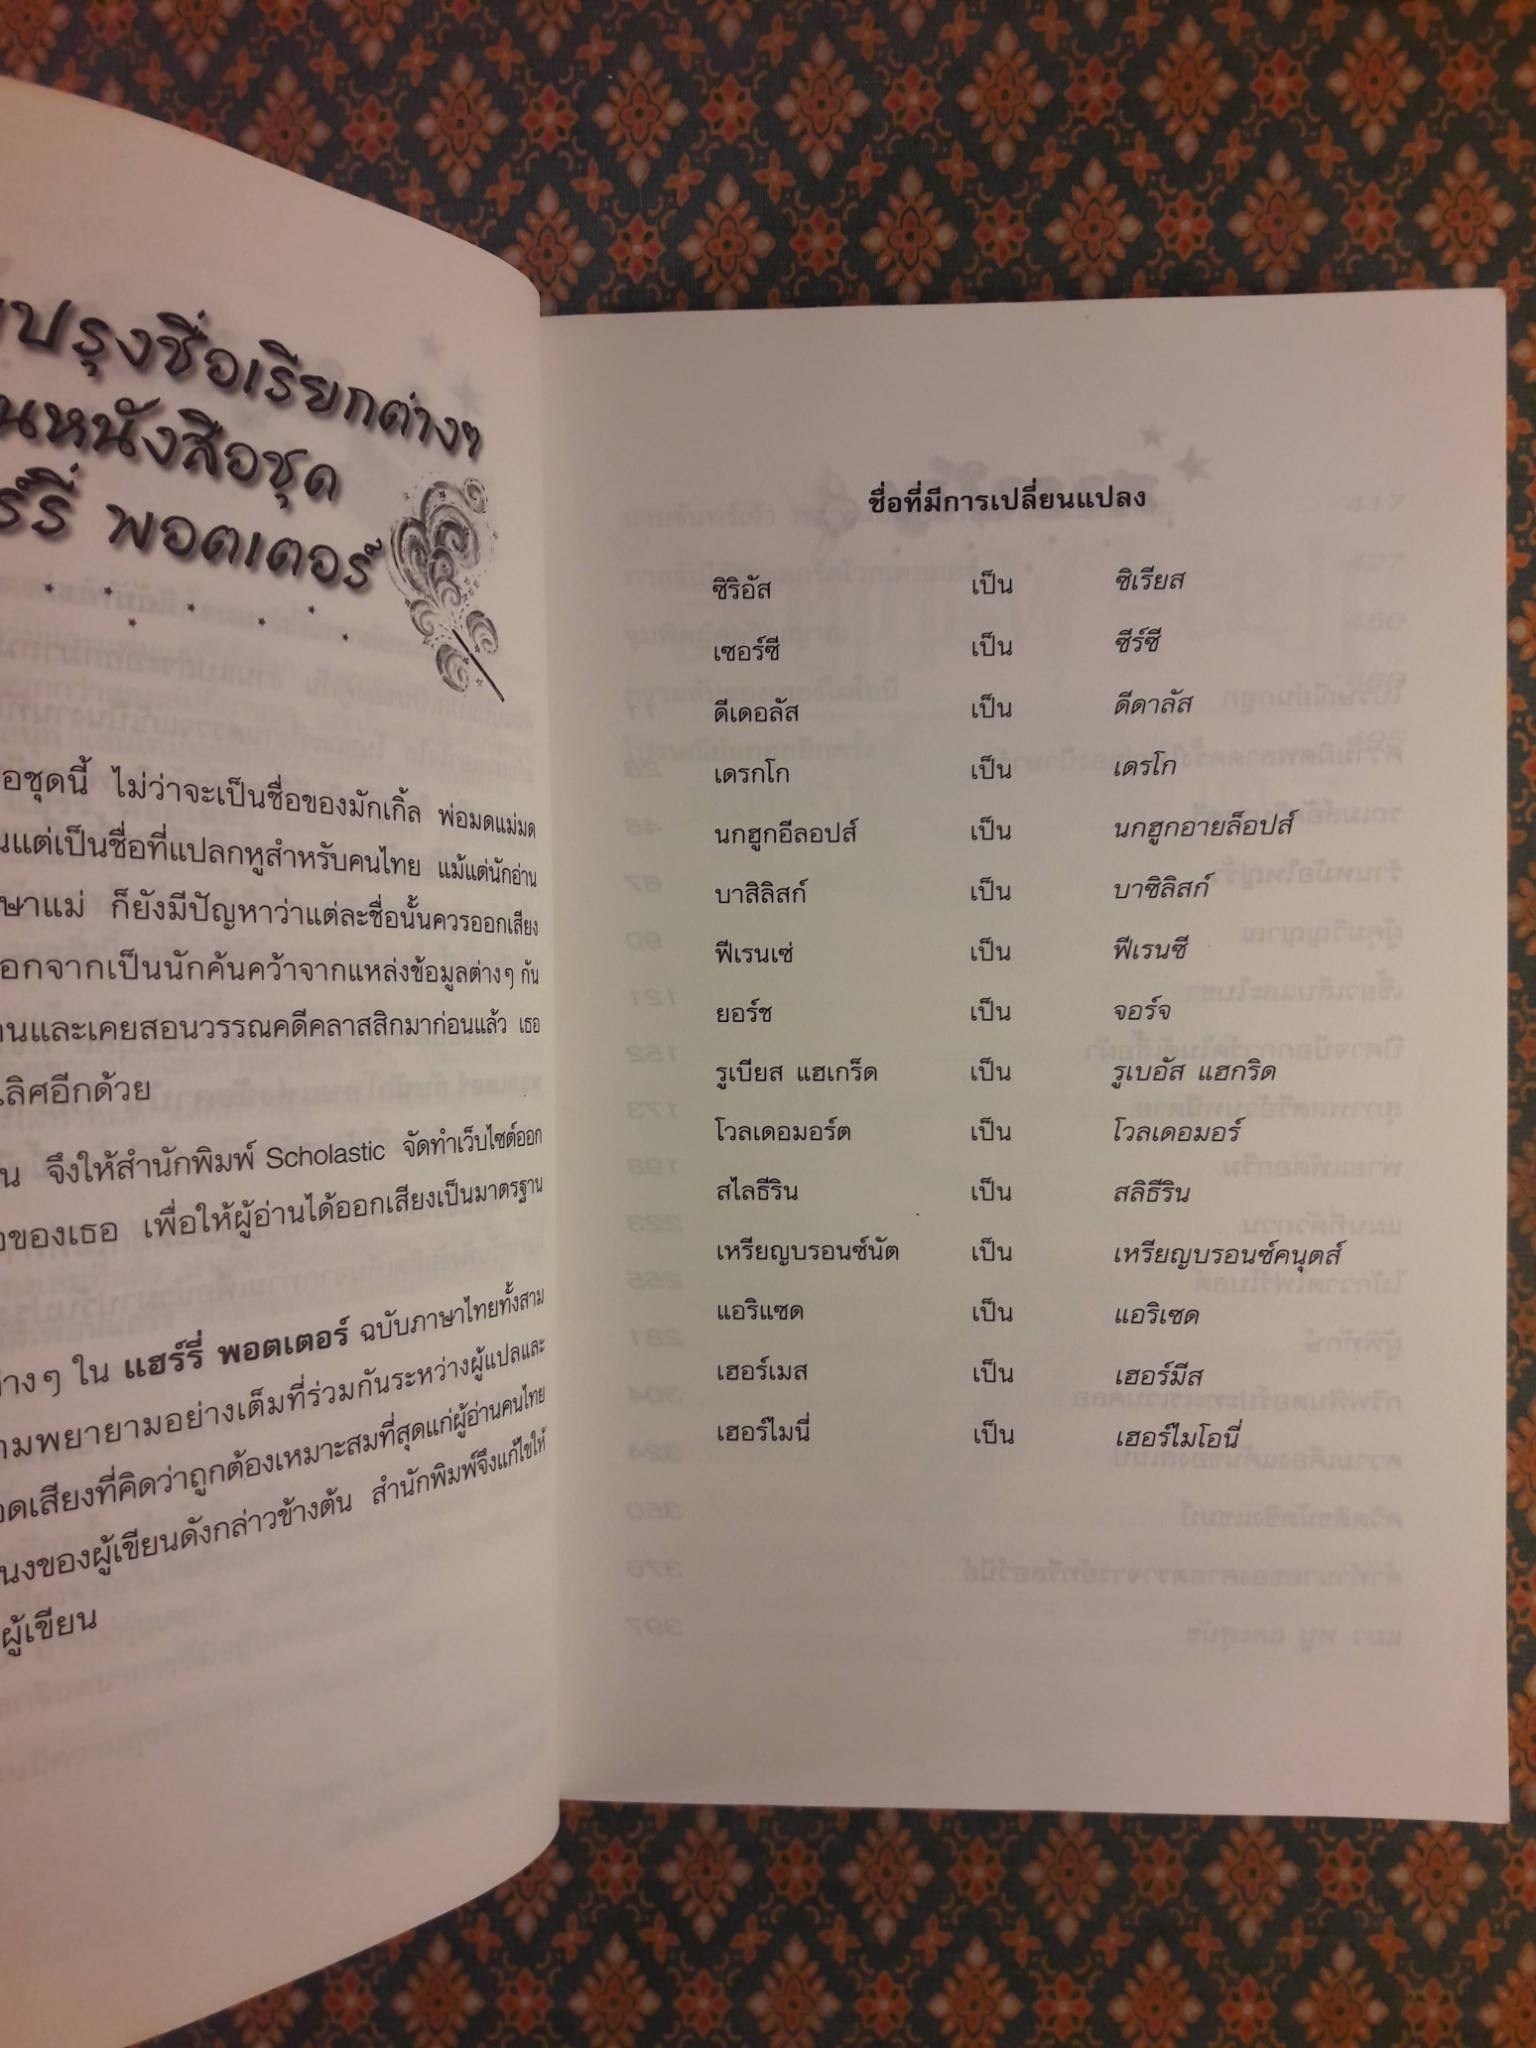 ปรุงชื่อเรียกต่างๆ
นหนังสือชุด
พอตเตอร์
อชุดนี้ ไม่ว่าจะเป็นชื่อของมักเกิ้ล พ่อมดแม่มด
นแต่เป็นชื่อที่แปลกหูสำหรับคนไทย แม้แต่นักอ่าน
ษาแม่ ก็ยังมีปัญหาว่าแต่ละชื่อนั้นควรออกเสียง
อกจากเป็นนักค้นคว้าจากแหล่งข้อมูลต่างๆ กัน
านและเคยสอนวรรณคดีคลาสสิกมาก่อนแล้ว เธอ
เลิศอีกด้วย
น จึงให้สำนักพิมพ์ Scholastic จัดทำเว็บไซต์ออก
ของเธอ เพื่อให้ผู้อ่านได้ออกเสียงเป็นมาตรฐาน
างๆ ใน แฮร์รี่ พอตเตอร์ ฉบับภาษาไทยทั้งสาม
ามพยายามอย่างเต็มที่ร่วมกันระหว่างผู้แปลและ
อดเสียงที่คิดว่าถูกต้องเหมาะสมที่สุดแก่ผู้อ่านคนไทย
นงของผู้เขียนดังกล่าวข้างต้น สำนักพิมพ์จึงแก้ไขให้
ผู้เขียน
ชื่อที่มีการเปลี่ยนแปลง
ซิริอัส เป็น ซิเรียส
เซอร์ซี เป็น ซีร์ซี
ดีเดอลัส เป็น ดีดาลัส
เดรกโก เป็น เดรโก
นกฮูกอีลอปส์ เป็น นกฮูกอายล็อปส์
บาสิลิสก์ เป็น บาซิลิสก์
ฟีเรนเซ่ เป็น ฟีเรนซี
ยอร์ช เป็น จอร์จ
รูเบียส แฮเกร็ด เป็น รูเบอัส แฮกริด
โวลเดอมอร์ต เป็น โวลเดอมอร์
สไลธีริน เป็น สลิธีริน
เหรียญบรอนซ์นัต เป็น เหรียญบรอนซ์คนุตส์
แอริแซด เป็น แอริเซด
เฮอร์เมส เป็น เฮอร์มีส
เฮอร์ไมนี่ เป็น เฮอร์ไมโอนี่